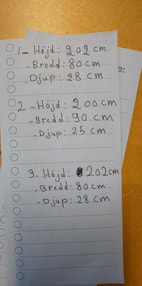 1- Höjd: 202 cm
- Bredd: 80 cm
- Djup: 28 cm
2- Höjd: 200 cm
- Bredd: 90 cm
- Djup: 25 cm
3- Höjd: 202 cm
- Bredd: 80 cm
- Djup: 28 cm